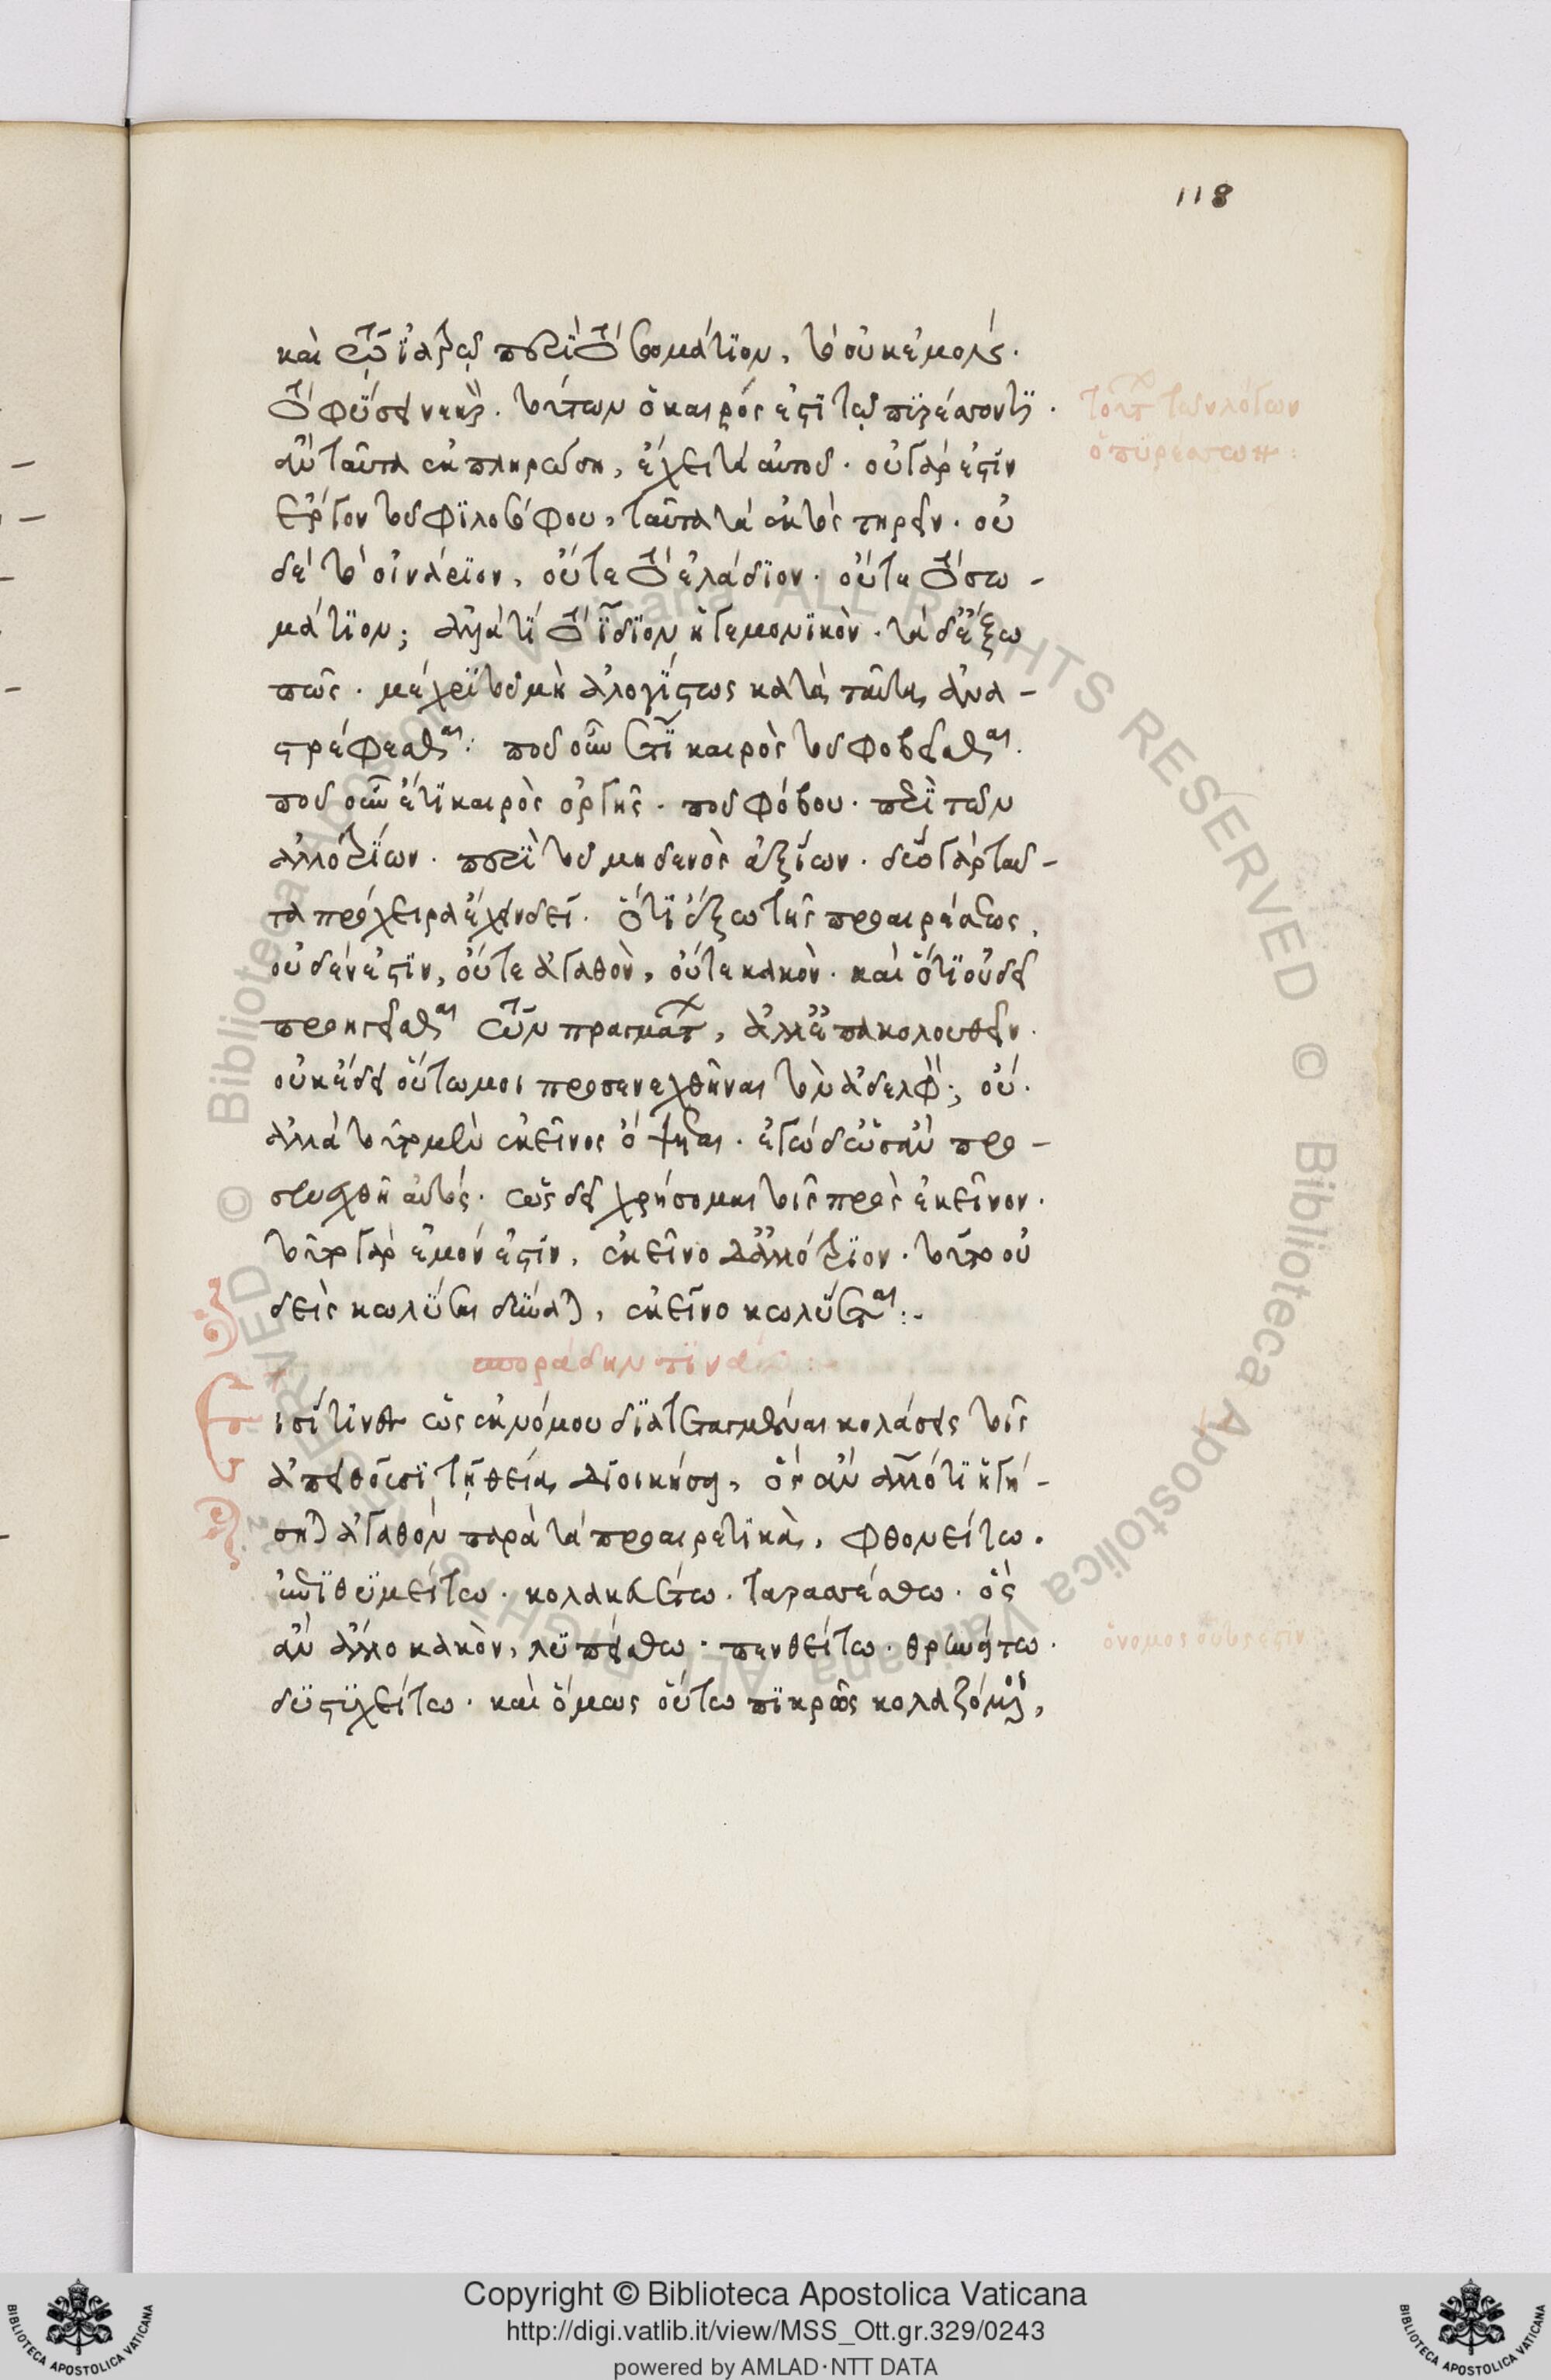 118
καὶ τῷ ἰατρῷ περὶ τὸ σωμάτιον, τὸ οὐκ ἐμὸν.
τὸ φύσει νεκρόν. τούτων ὁ καιρός ἐστι τῷ πυρέσσοντι.
ἂν ταῦτα ἐκπληρώση, ἔχει τὰ αὐτοῦ. οὐ γάρ ἐστιν
ἔργον τοῦ φιλοσόφου, ταῦτα τὰ ἐκτὸς τηρεῖν. οὐ
δὲ τὸ οἰνάριον, οὔτε τὸ ἐλάδιον. οὔτε τὸ σω -
μάτιον; ἀλλὰ τί τὸ ἴδιον ἡγεμονικὸν. τὰ δὲ ἔξω
πῶς. μέχρι τοῦ μὴ ἀλογίστως κατὰ ταῦτα ἀνα -
στρέφεσθαι: ποῦ οὖν ἔτι καιρὸς τοῦ φοβεῖσθαι.
ποῦ οὖν ἔτι καιρὸς ὀργῆς. ποῦ φόβου. περὶ τῶν
ἀλλοτρίων. περὶ τοῦ μηδενὸς ἀξίων. δύο γὰρ ταῦ -
τα πρόχειρα ἔχειν δεῖ. ὅτι ἔξω τῆς προαιρέσεως,
οὐδέν ἐστιν, οὔτε ἀγαθὸν, οὔτε κακὸν. καὶ ὅτι οὐ δεῖ
προηγεῖσθαι τῶν πραγμάτων, ἀλλ' ἐπακολουθεῖν.
οὐκ ἔδει οὕτω μοι προσενεχθῆναι τὸν ἀδελφόν; οὔ.
ἀλλὰ τοῦτο μὲν ἐκεῖνος ὄψεται. ἐγὼ δ' ὡς ἂν προ -
σενεχθῆ αὐτὸς. ὡς δεῖ χρήσομαι τοῖς πρὸς ἐκεῖνον.
τοῦτο γὰρ ἐμόν ἐστιν, ἐκεῖνο δ' ἀλλότριον. τοῦτο οὐ
δεὶς κωλῦσαι δύναται, ἐκεῖνο κωλύεται:.
σποράδην τινά
Εἰσί τινες ὡς ἐκ νόμου διατεταγμέναι κολάσεις τοῖς
ἀπειθοῦσι τῇ θείᾳ διοικήσει, ὃς ἂν ἄλλό τι ἡγή -
σηται ἀγαθὸν παρὰ τὰ προαιρετικὰ, φθονείτω.
ἐπιθυμείτω. κολακευέτω. ταρασσέσθω. ὃς
ἂν ἄλλο κακὸν, λυπείσθω. πενθείτω. θρηνείτω.
δυστυχείτω. καὶ ὅμως οὕτω πικρῶς κολαζόμενοι,
ὁ πυρέσσων:
ὁ νόμος οὗτός ἐστιν
Copyright © Biblioteca Apostolica Vaticana
http://digi.vatlib.it/view/MSS_Ott.gr.329/0243
powered by AMLAD·NTT DATA